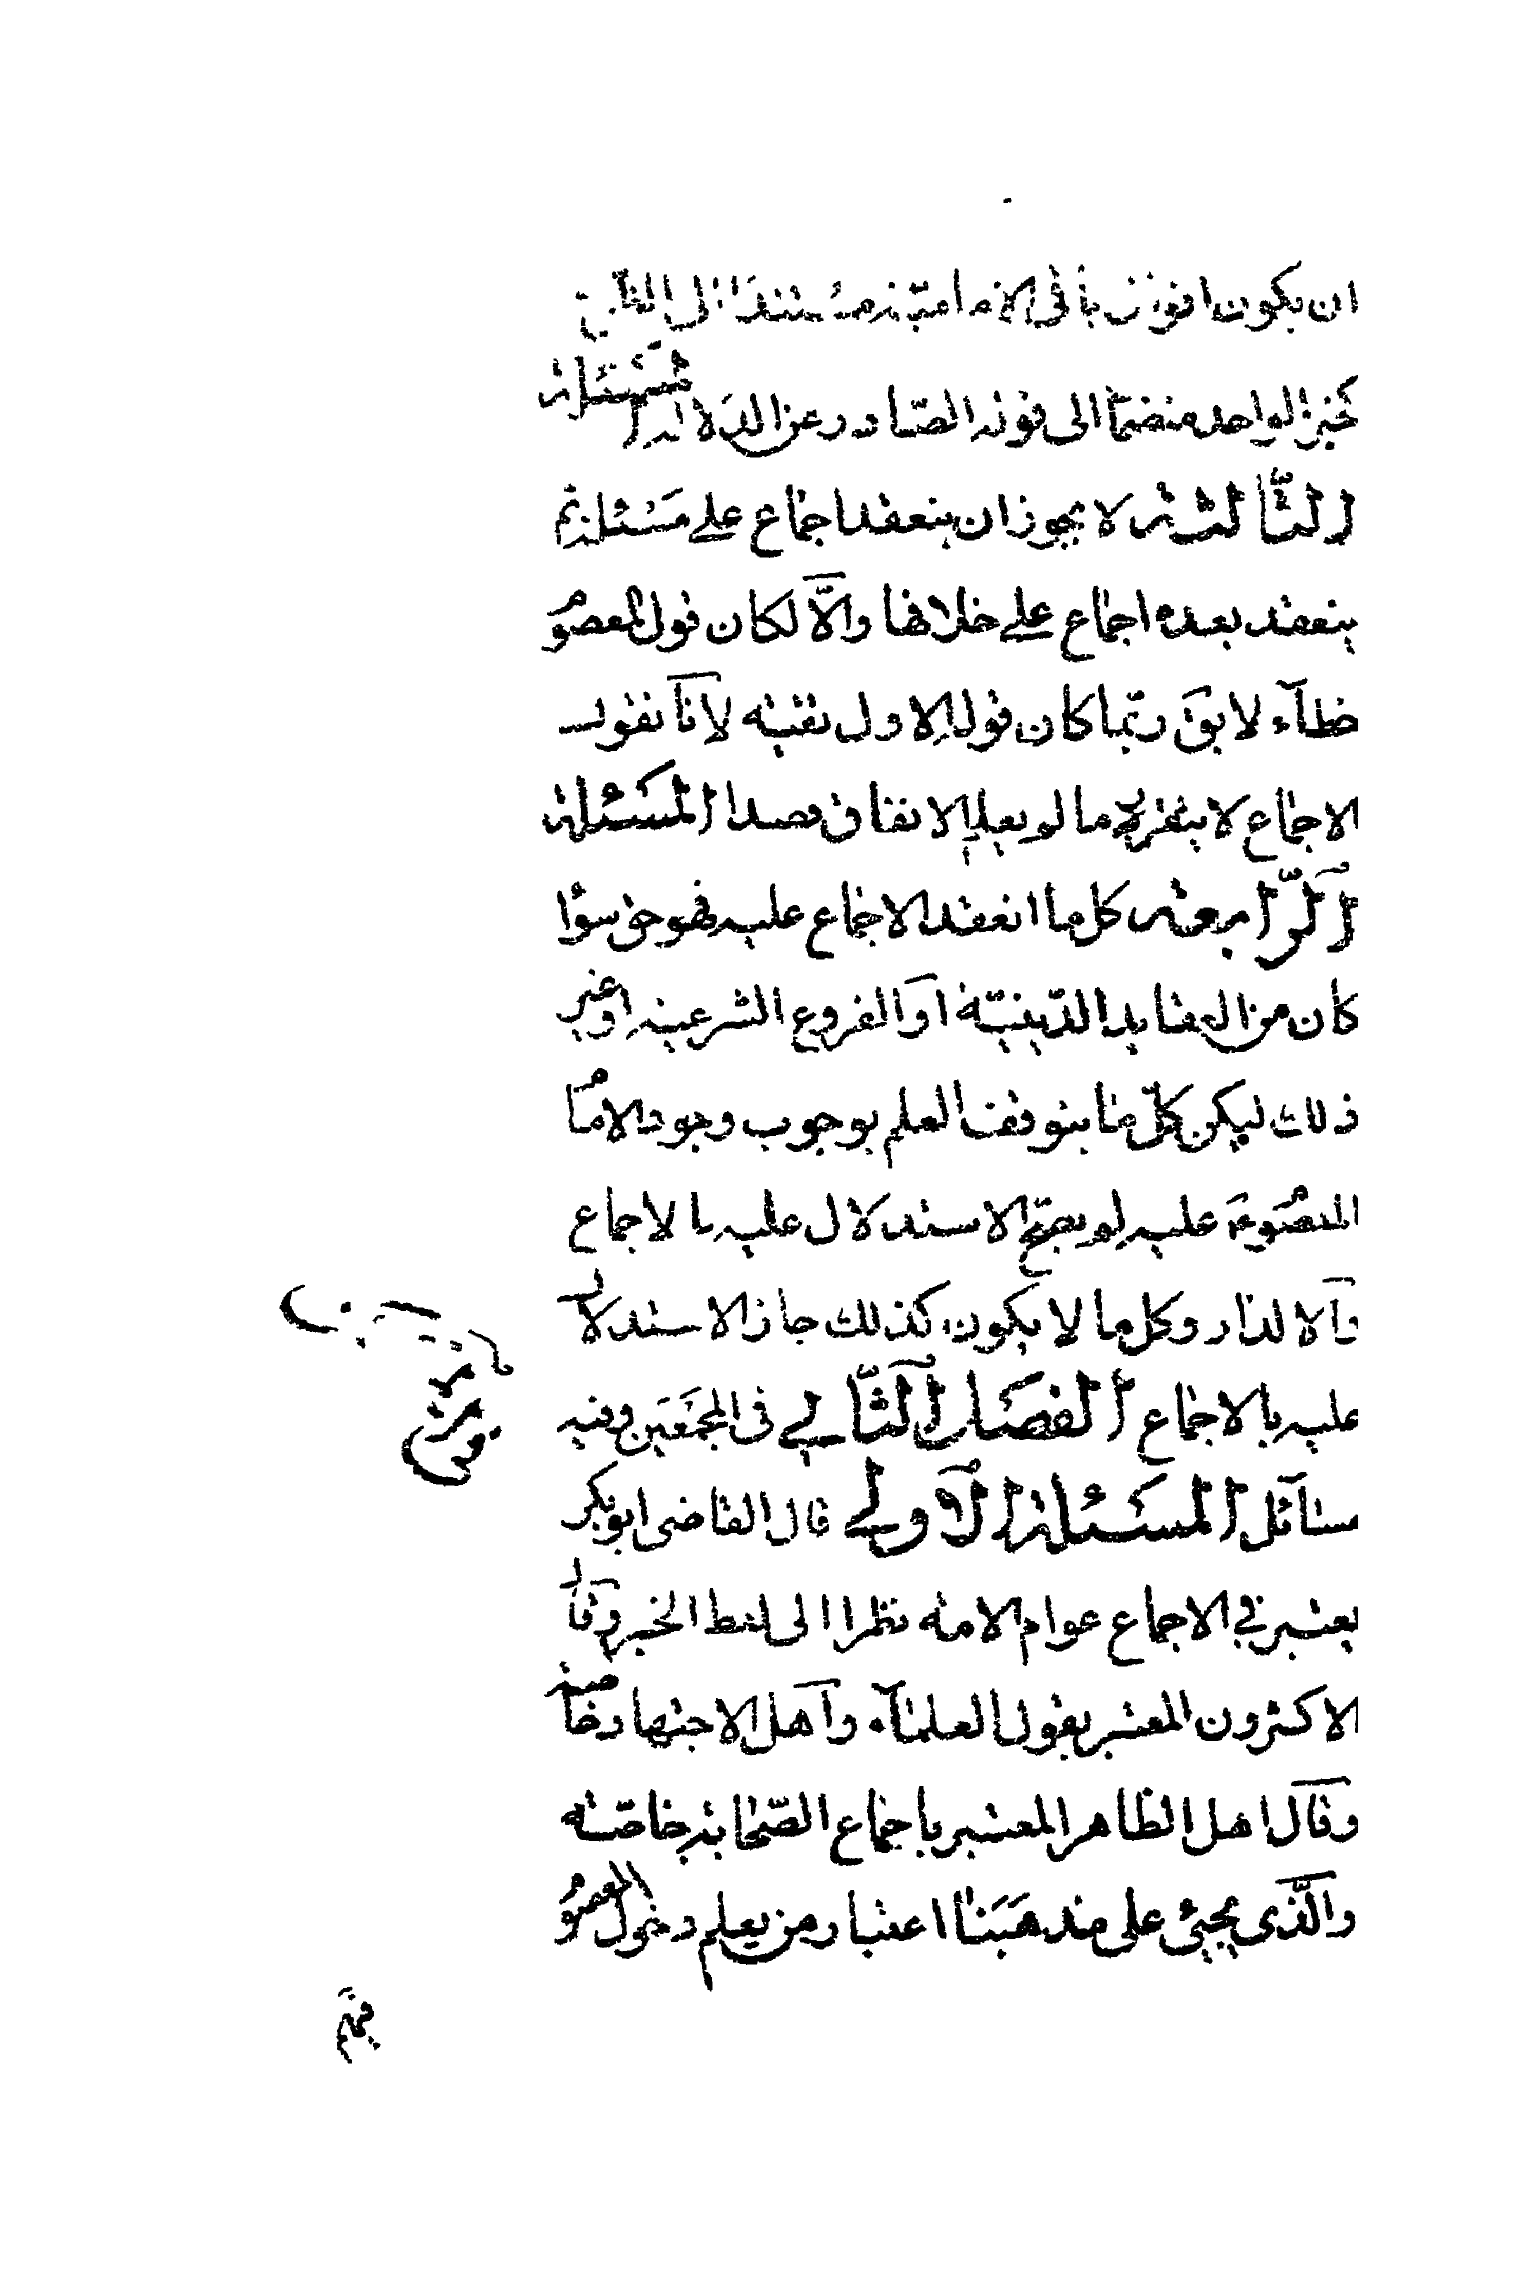 ان يكون اقوال باقى الامامية مستندا الى الظن
كخبر الواحد منضما الى قوله الصادر عن الدلالة المسئلة
الثالثة لا يجوز ان ينعقد اجماع على مسئلة ثم
ينعقد بعده اجماع على خلافها والّا لكان قول المعصوم
خطآء لا يق ربّما كان قوله الاول تقيه لانّا نقول
الاجماع لا يتقرر ما لو يعلم الاتفاق قصدا المسئلة
الرّابعة كل ما انعقد الاجماع عليه فهو حق سوآا
كان من العقايد الدّينيّة او الفروع الشرعيه او غير
ذلك ليكن كلّ ما يتوقف العلم بوجوب وجود الامام
المعصوم عليه لو يصحّ الاستدلال عليه بالاجماع
والّا لدار وكل ما لا يكون كذلك جاز الاستدلال
عليه بالاجماع الفصل الثّانى فى المجمعين وفيه
مسآئل المسئلة الاولى قال القاضى ابو بكر
يعتبر فى الاجماع عوام الامه نظرا الى لفظ الخبر وقال
الاكثرون المعتبر بقول العلمآء واهل الاجتهاد خاصة
وقال اهل الظاهر المعتبر باجماع الصّحابة خاصّه
والّذى يجيئ على مذهبنا اعتبار من يعلم دخول المعصوم
فيهم